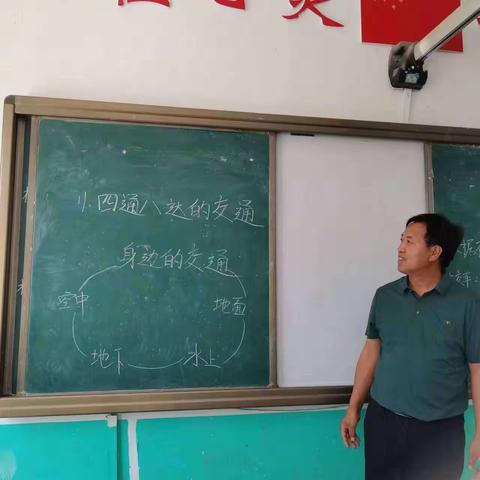 11.四通八达的交通
身边的交通
空中 地面
地下 水上
据